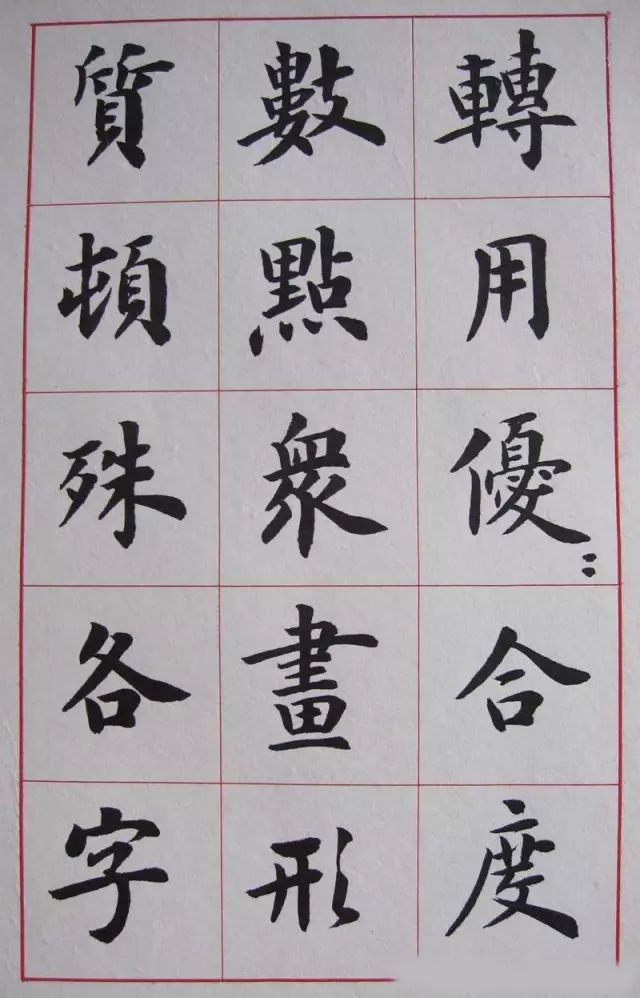 轉用優〻合度
數點衆畫形
質頓殊各字